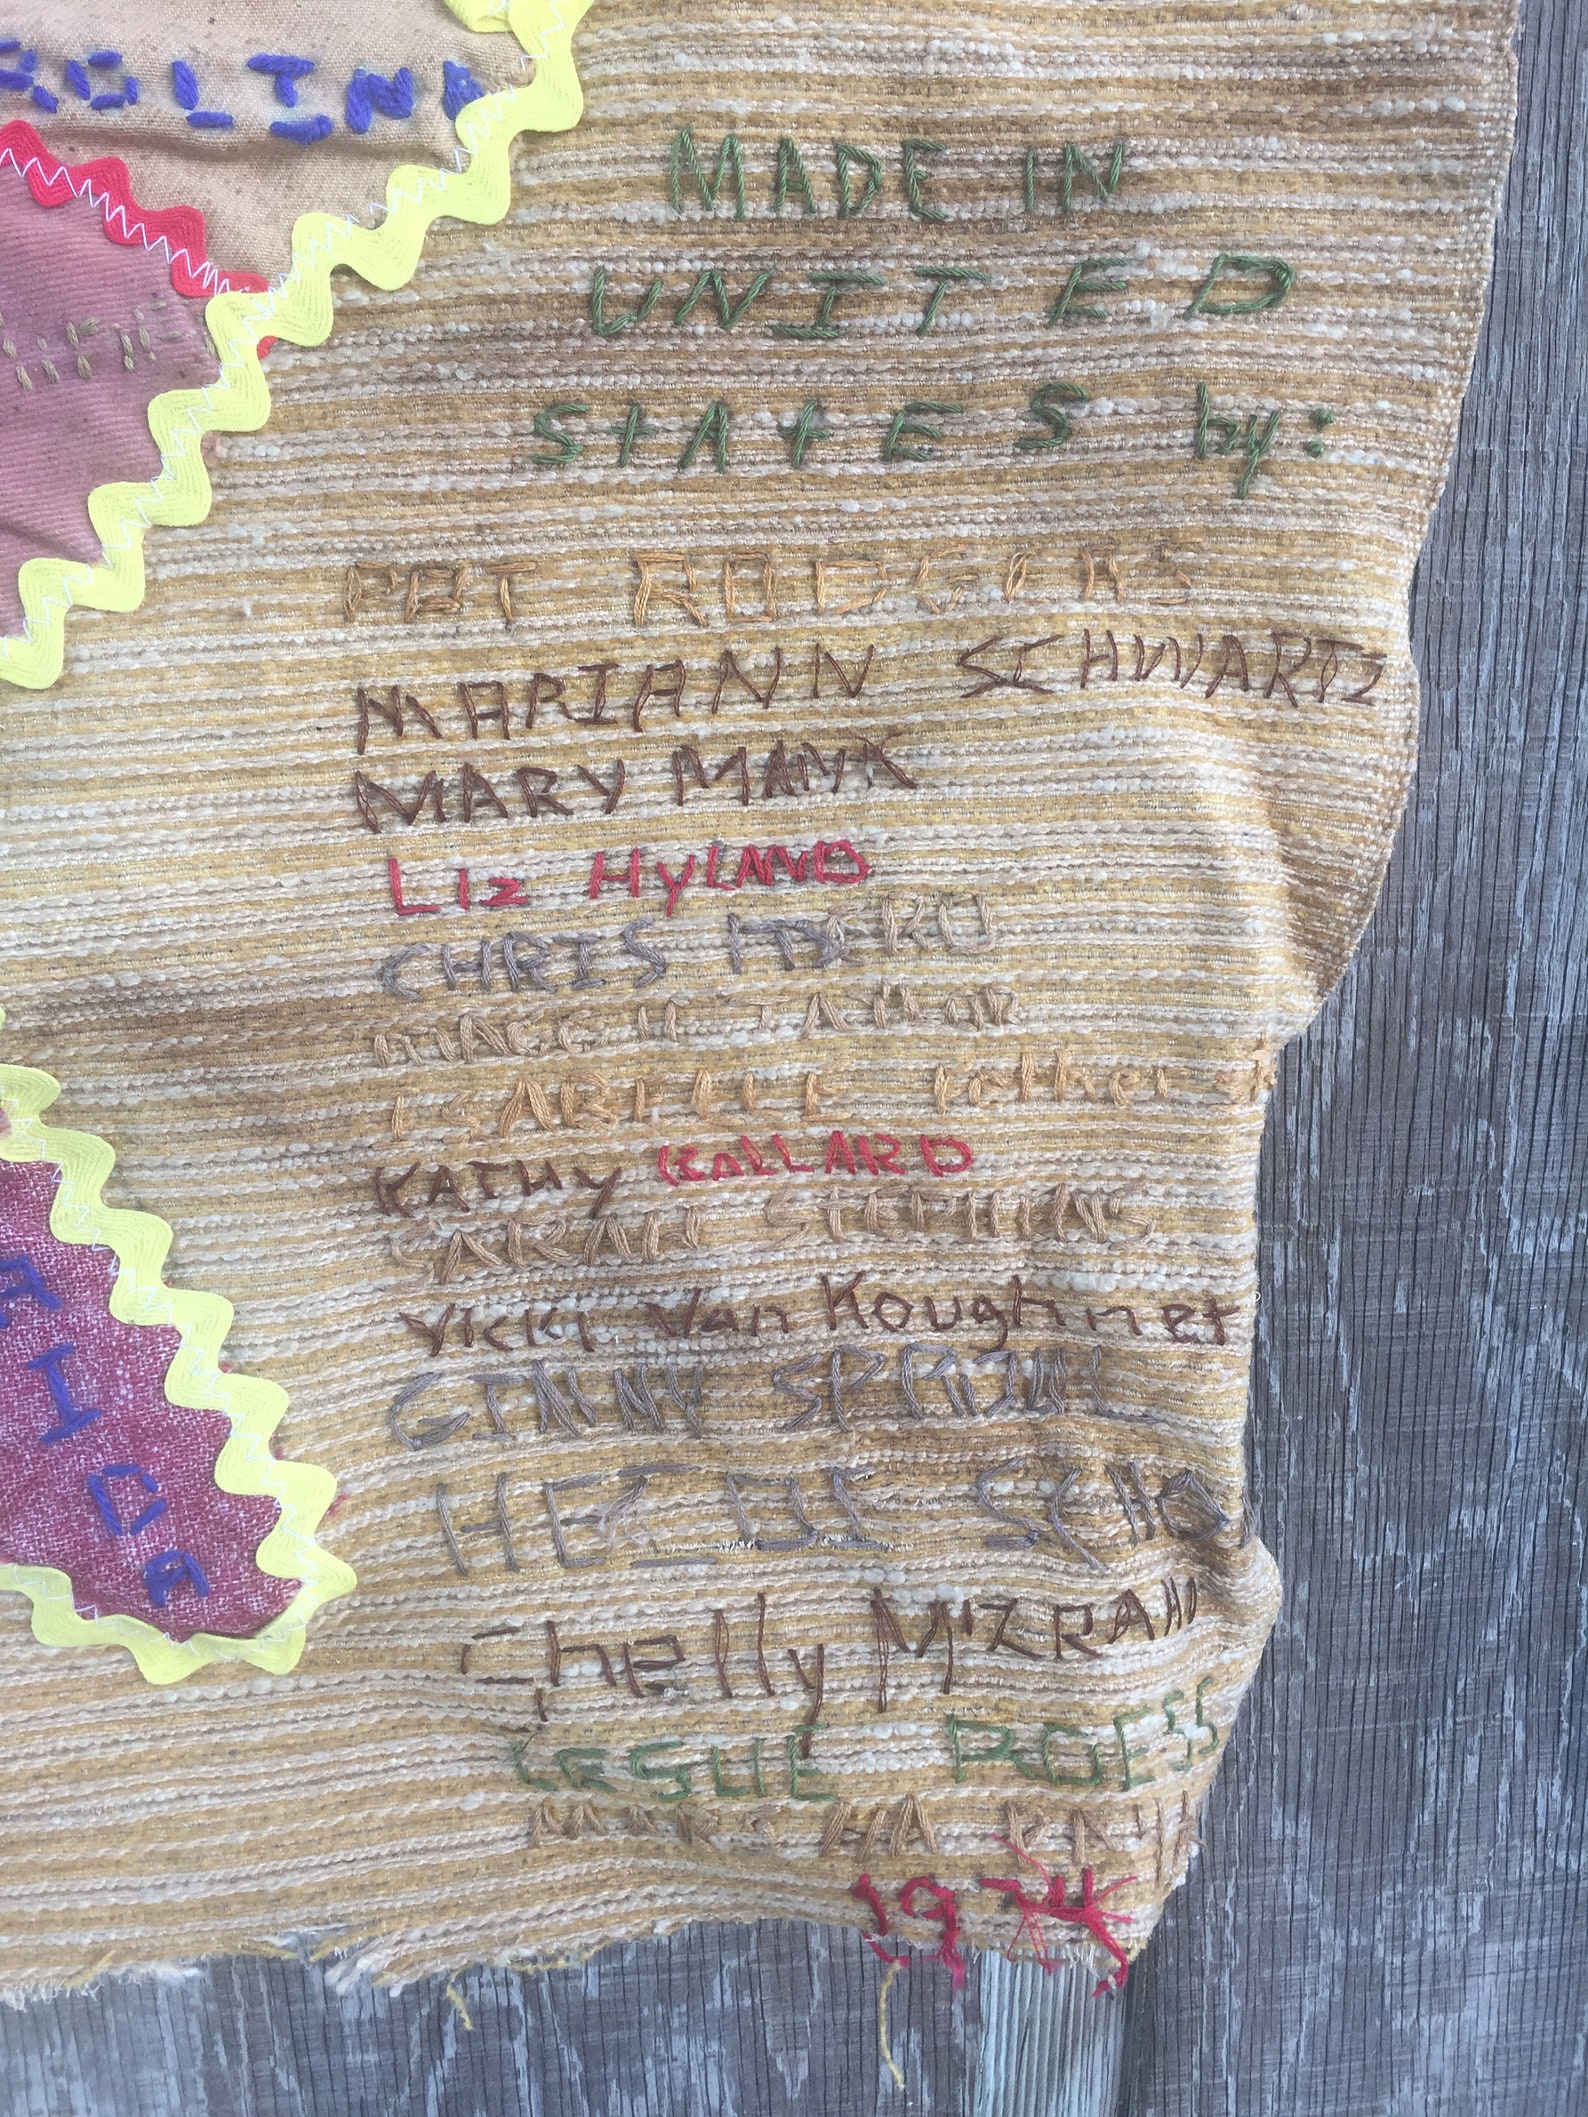 ROLINA
MADE IN
UNITED
StAtES by:
PAT RODGERS
MARIANN SCHWARTZ
MARY MANX
Liz HyLAND
CHRIS
TAYLOR
ISABELLE Fetherst
KATHY BALLARD
SARAH STEPHENS
VICKI Van Koughnet
GINNY SPROUL
HEIDI SCHO
Shelly MIZRAHI
LESLIE ROESS
MARSHA
1974
AIDA